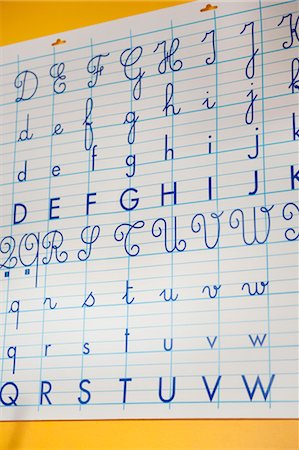 D E F G H I J K
d e f g h i j k
d e f g h i j k
D E F G H I J K
Q Q R S T U V W
q r s t u v w
q r s t u v w
Q R S T U V W